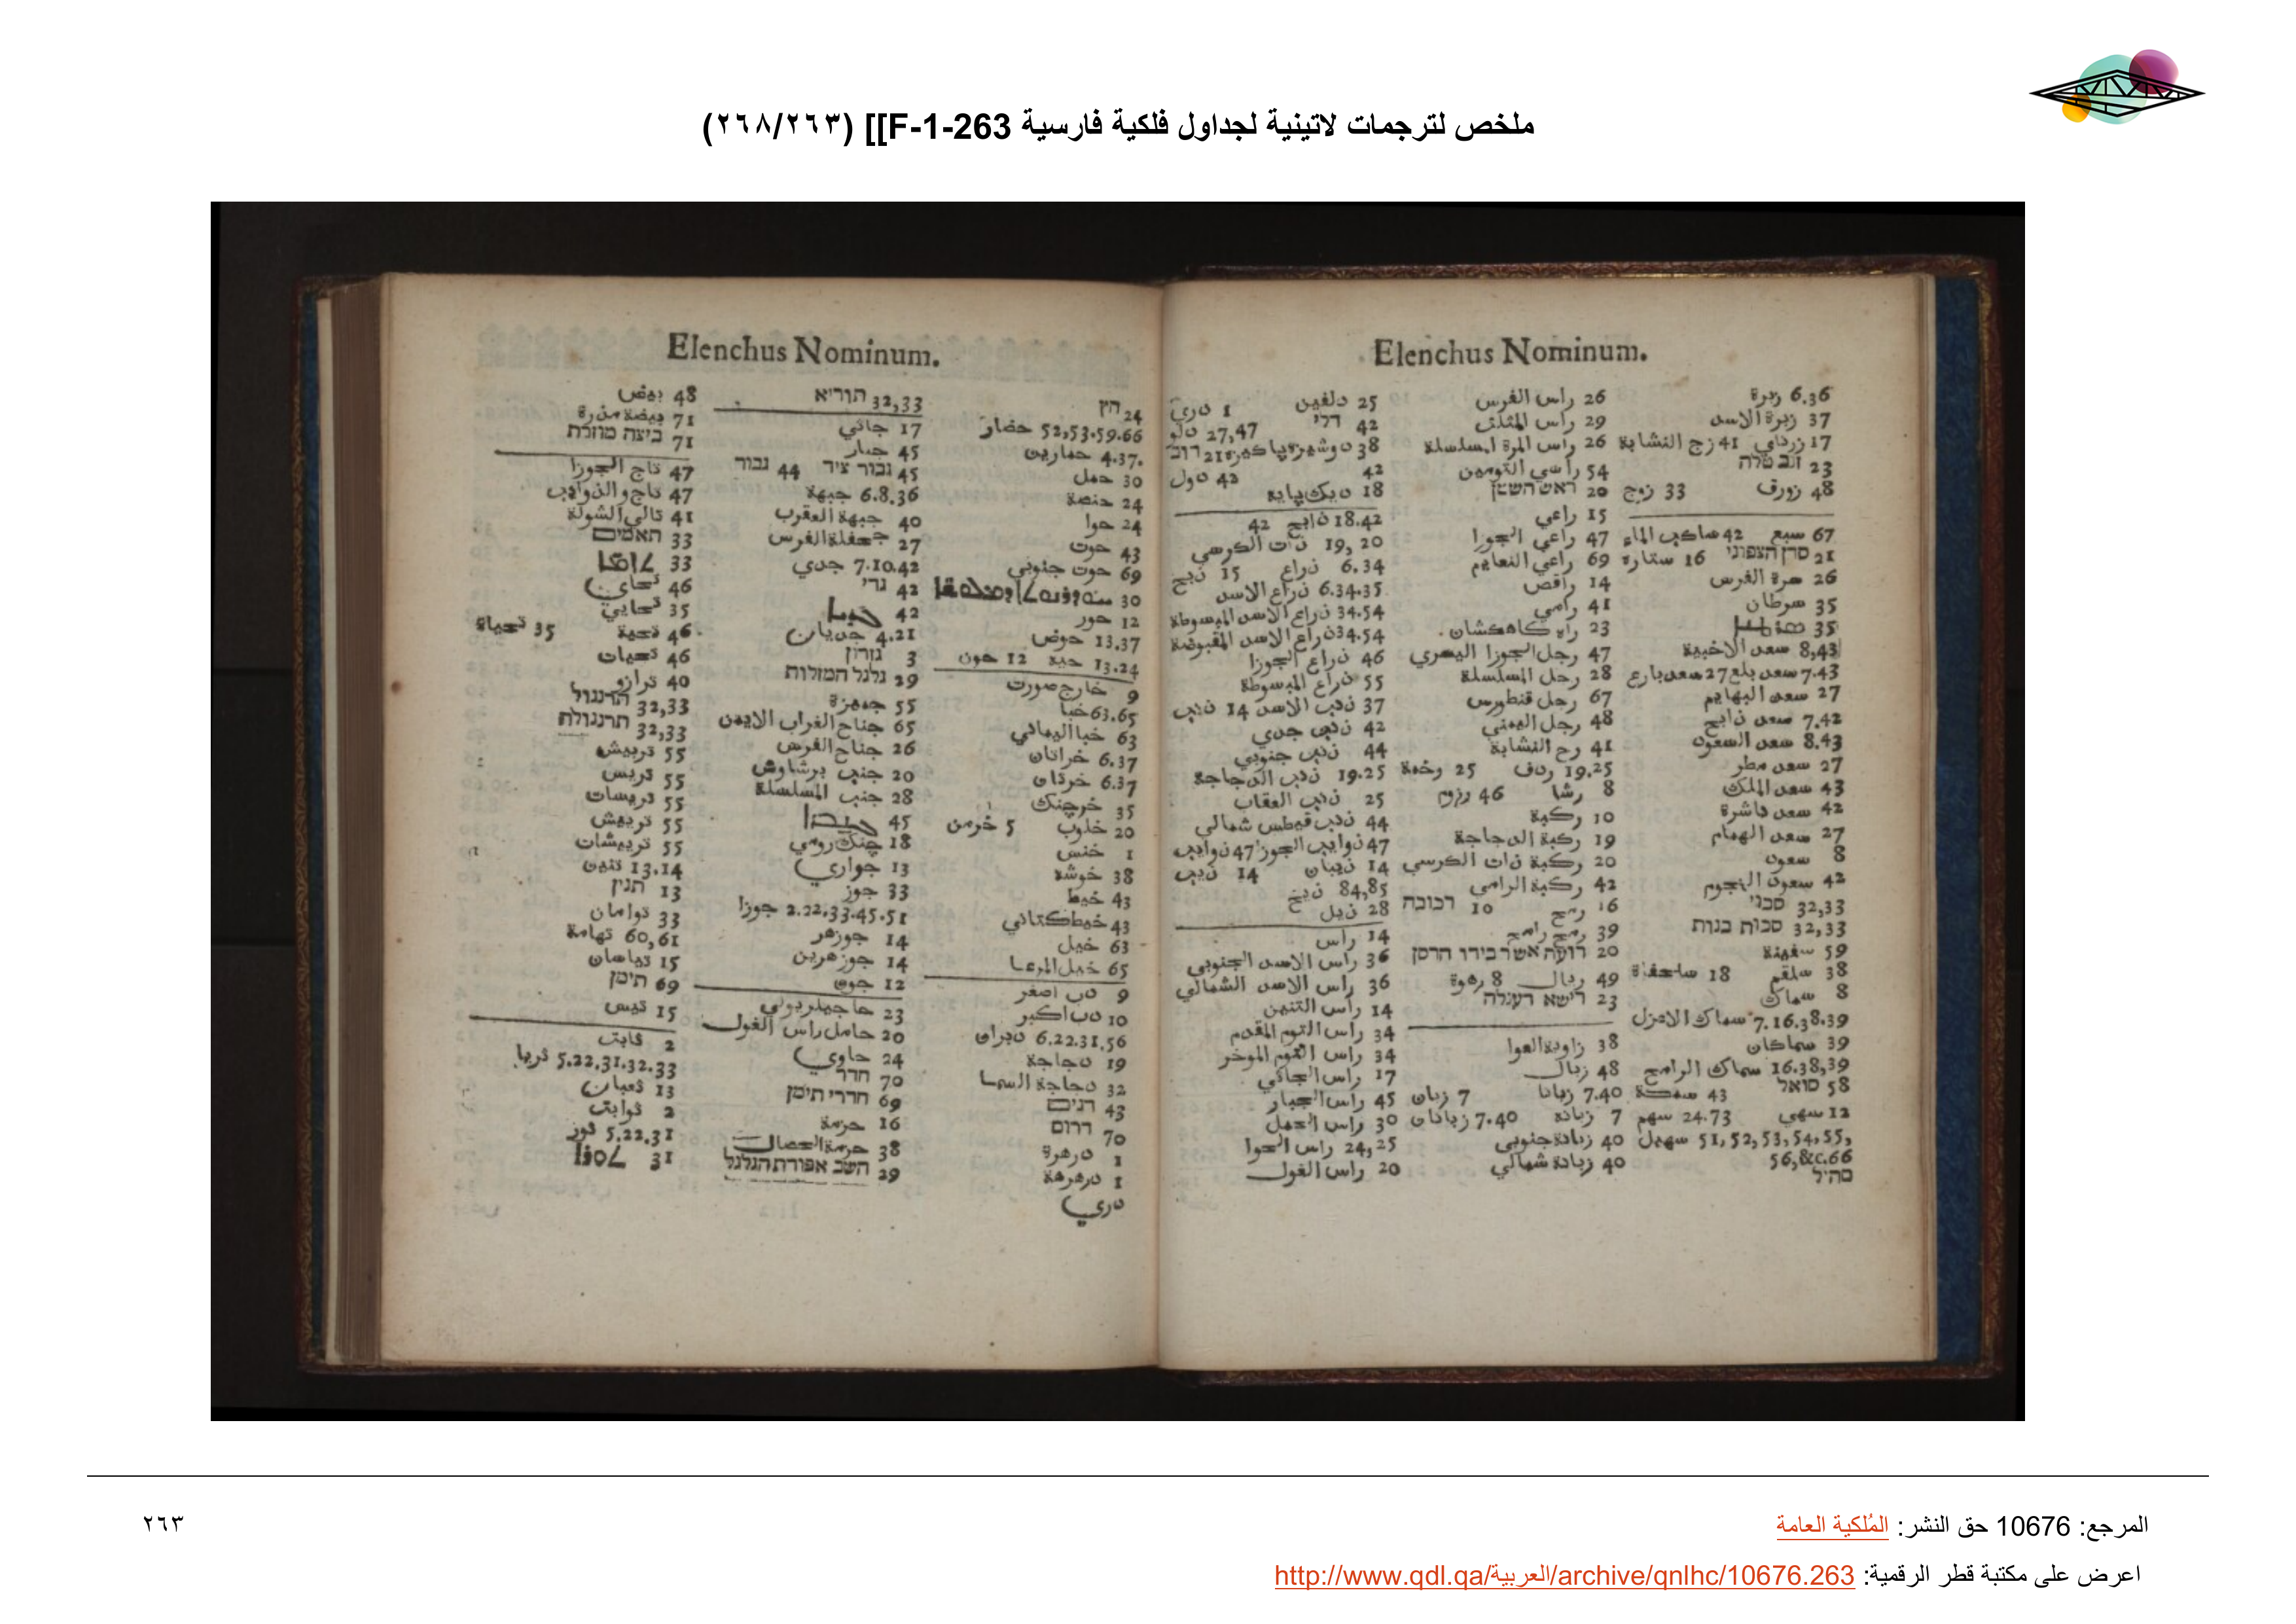 ملخص لترجمات لاتينية لجداول فلكية فارسية F-1-263]] (٢٦٨/٢٦٣)
Elenchus Nominum.
48 بيض
71 بيضة مذرة
71 ביצה מוזרת
47 تاج الجوزا
47 تاج والذوايب
41 تالي الشولة
33 תאמים
46 تحاي
35 تحايي
46 تحية 35 تحياة
46 تحيات
40 ترازو
32,33 תרנגול
32,33 תרנגולת
55 تربيش
55 تريس
55 تريسات
55 تريش
55 تريشات
13.14 تنين
13 תנין
33 توامان
60,61 تهامة
15 تياسان
69 תימן
15 تيس
2 ثابت
5.22.31.32.33 ثريا
13 ثعبان
2 ثوابت
5.22.31 ثور
32,33 תוריא
17 جاثي
45 جبار
45 גבור ציד 44 גבור
6.8.36 جبهة
40 جبهة العقرب
27 جحفلة الفرس
7.10.42 جدي
42 גדי
4.21 جديان
3 גורון
29 גלגל המזלות
55 جمزة
65 جناح الغراب الايمن
26 جناح الفرس
20 جنب برشاوش
28 جنب المسلسلة
18 چنك رومي
13 جواري
33 جوز
2.22.33.45.51 جوزا
14 جوزهر
14 جوزهرين
12 جون
20 حامل راس الغول
24 حاوي
70 חדר
69 חדרי תימן
16 حزمة
29 חשב אפודת הגלגל
24 הץ
52,53.59.66 حضار
4.37. حمارين
30 حمل
24 حنصة
24 حوا
43 حوت
69 حوت جنوبي
12 حور
13.37 حوض
13.24 حية 12 حون
9 خارج صورت
63.65 خبا
63 خبا اليماني
6.37 خراتان
6.37 خرتان
35 خرچنك
20 خلوب 5 خرمن
1 خنس
38 خوشه
43 خيط
43 خيط كتاني
63 خيل
9 دب اصغر
10 دب اكبر
6.22.31,56 دبران
19 دجاجة
32 دجاجة السما
43 דגים
70 דרום
1 درهرة
1 درهرهة
دري
Elenchus Nominum.
25 دلفين 1 دري
42 דלי 27,47 دلو
42 42 دول
18 ديك پايه
18.42 ذابح 42
19, 20 ذات الكرسي
6.34 ذراع 15 ذبح
6.34.35 ذراع الاسد
34.54 ذراع الاسد المبسوطة
34.54 ذراع الاسد المقبوضة
46 ذراع الجوزا
55 ذراع المبسوطة
37 ذنب الاسد 14 ذنب
42 ذنب جدي
44 ذنب جنوبي
19.25 ذنب الدجاجة
25 ذنب العقاب
44 ذنب قيطس شمالي
47 ذوايب الجوزا 47 ذوايب
14 ذيبان 14 ذيب
84,85 ذيخ
28 ذيل
14 راس
36 راس الاسد الجنوبي
36 راس الاسد الشمالي
14 راس التنين
34 راس التوم المقدم
34 راس التوم الموخر
17 راس الجاثي
45 راس الجبار
30 راس الحمل
24,25 راس الحوا
20 راس الغول
26 راس الفرس
29 راس المثلث
26 راس المرة المسلسلة
54 راسي التومين
20 ראש השטן
15 راعي
47 راعي الجوزا
69 راعي النعايم
14 راقص
41 رامي
23 راه كاهكشان.
47 رجل الجوزا اليسري
28 رجل المسلسلة
67 رجل قنطورس
48 رجل اليمني
41 رج النشابة
19.25 ردف 25 رخمة
8 رشا 46 رزم
10 ركبة
19 ركبة الدجاجة
20 ركبة ذات الكرسي
42 ركبة الرامي
16 رمح 10 רכובה
39 رمح رامح
20 רועה אשר בידו הרסן
49 ريال 8 رهوة
23 רישא דעגלה
38 زاوية العوا
48 زبال
7.40 زبانا 7 زبان
7 زبانة 7.40 زبانان
40 زبانة جنوبي
40 زبانة شمالي
6.36 زبرة
37 زبرة الاسد
17 زرداي 41 زج النشابة
23 זנב טלה
48 زورق 33 زوج
67 سبع 42 ساكب الما
21 סרן הצפוני 16 ستاره
26 سرة الفرس
35 سرطان
8,43 سعد الاخبية
7.43 سعد بلع 27 سعد بارع
27 سعد البهايم
7.42 سعد ذابح
8.43 سعد السعود
27 سعد مطر
43 سعد الملك
42 سعد ناشرة
27 سعد الهمام
8 سعود
42 سعود النجوم
32,33 סכני
32,33 סכות בנות
59 سفينة
38 سلقم 18 سلحفاة
8 سماك
7.16.38.39 سماك الاعزل
39 سماكان
16.38,39 سماك الرامح
58 סואל 43 سمكة
12 سهي 24.73 سهم
51, 52, 53, 54, 55, سهيل
56,&c.66
סהיל
المرجع: 10676 حق النشر: المُلكية العامة
٢٦٣
اعرض على مكتبة قطر الرقمية: http://www.qdl.qa/العربية/archive/qnlhc/10676.263